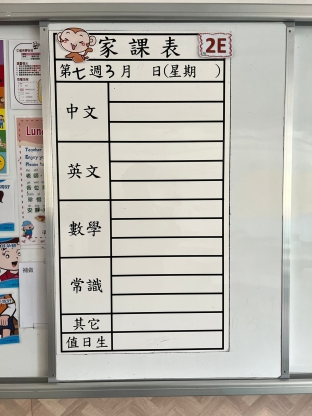 家課表 2E
第七週3月 日(星期 )
中文
英文
數學
常識
其它
值日生
Lun
Teacher
Enjoy